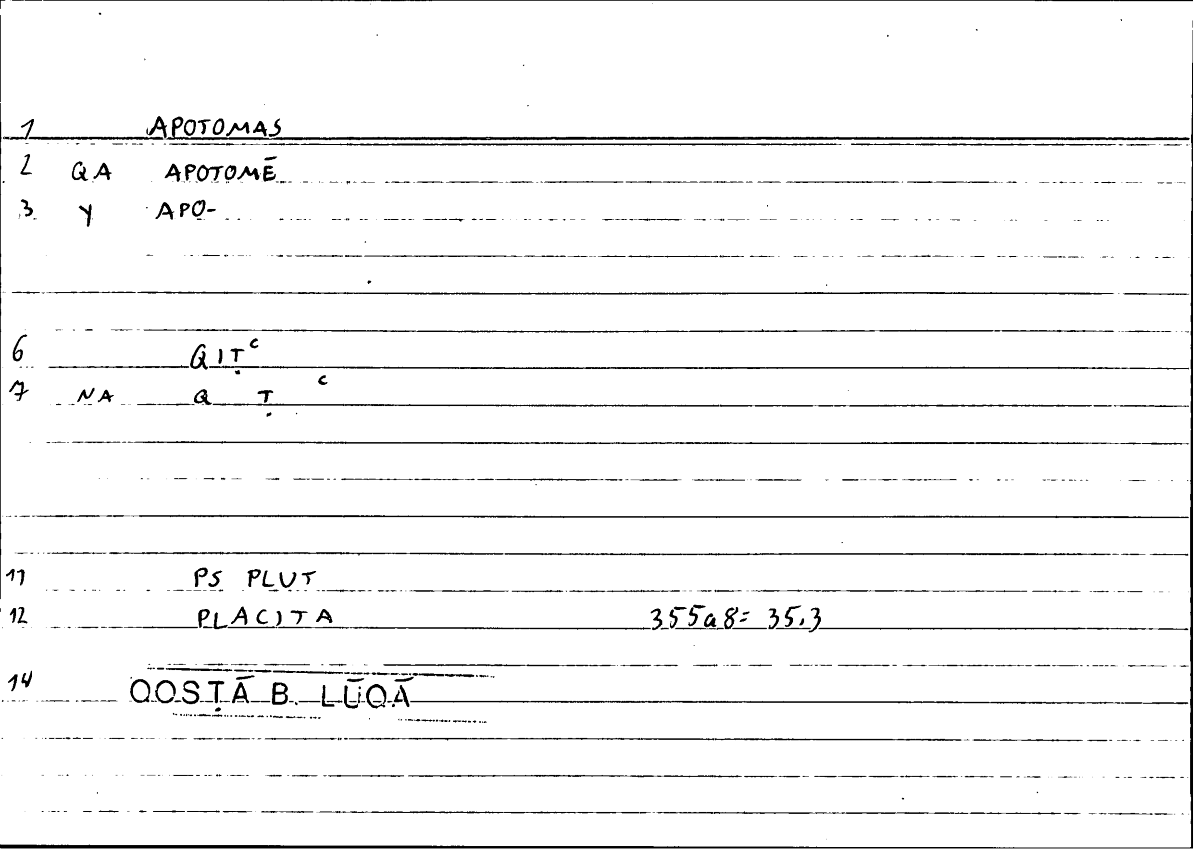 1 APOTOMAS
2 QA APOTOMĒ
3. Y APO-
6 QIṬᶜ
7 NA Q Ṭ ᶜ
11 PS PLUT
12 PLACITA 355a8= 35.3
14 QOSṬĀ B. LŪQĀ